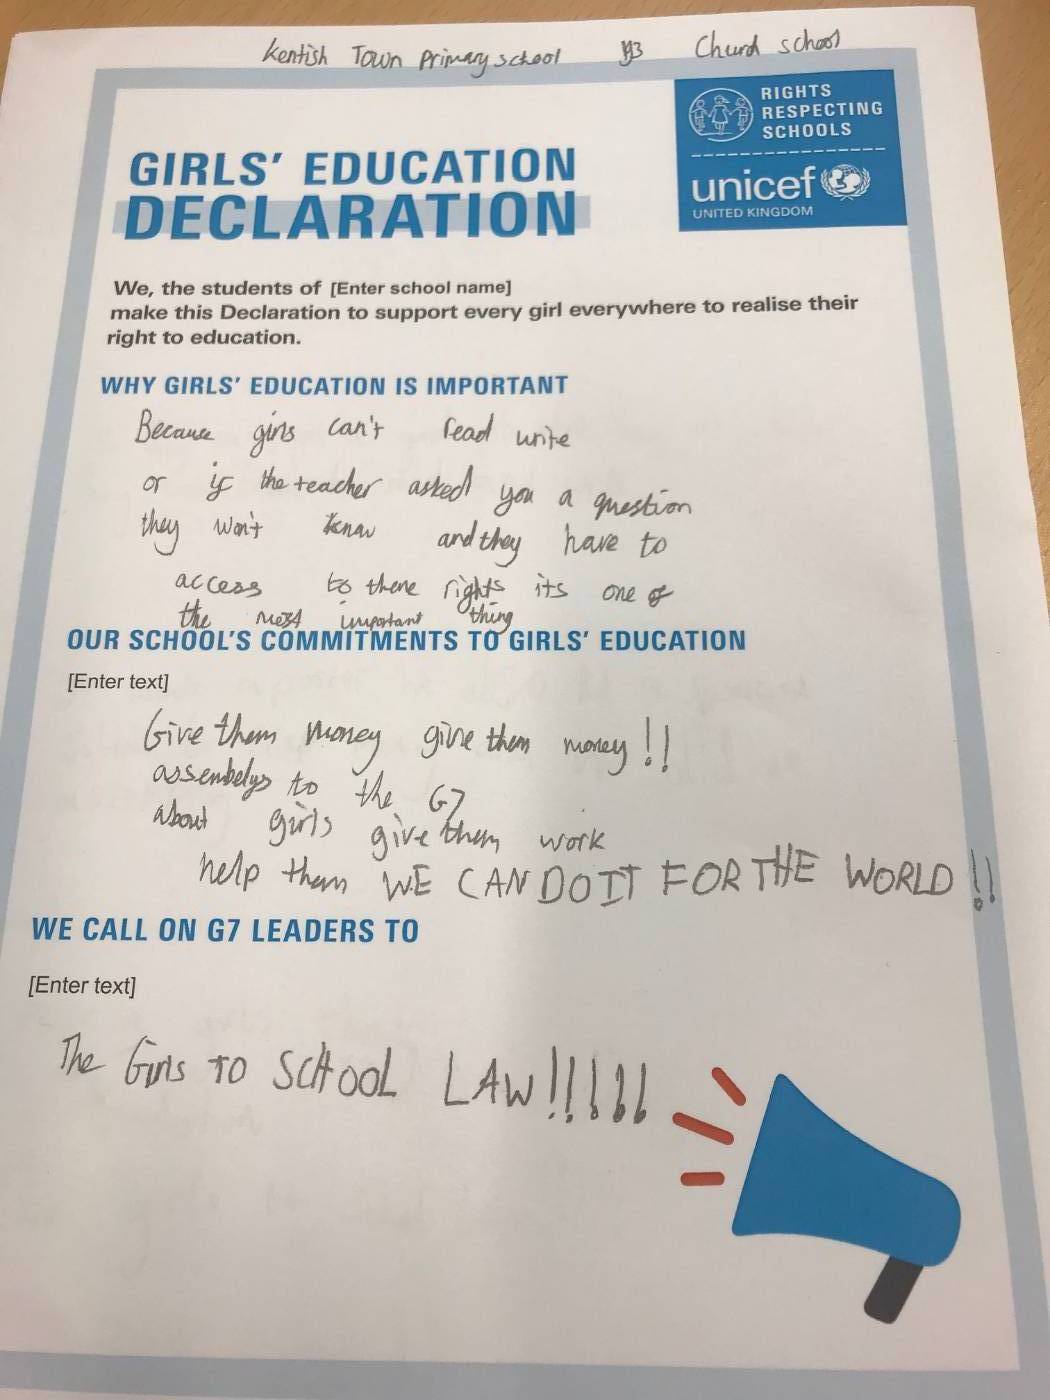 Kentish Town Primary school Y3 Churd school
RIGHTS
RESPECTING
SCHOOLS
unicef
UNITED KINGDOM
GIRLS' EDUCATION
DECLARATION
We, the students of [Enter school name]
make this Declaration to support every girl everywhere to realise their
right to education.
WHY GIRLS' EDUCATION IS IMPORTANT
Because girls can't read write
or if the teacher asked you a question
they won't know and they have to
access to there rights its one of
the most important thing
OUR SCHOOL'S COMMITMENTS TO GIRLS' EDUCATION
[Enter text]
Give them money give them money!!
assembelys to the G7
about girls give them work
help them WE CAN DO IT FOR THE WORLD!!
WE CALL ON G7 LEADERS TO
[Enter text]
The Girls TO SCHOOL LAW!!!!!!